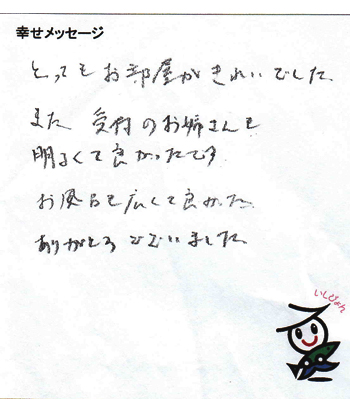 幸せメッセージ
とってもお部屋がきれいでした。
また 受付のお姉さんも
明るくて良かったです
お風呂も広くて良かった
ありがとうございました。
いしぴょん